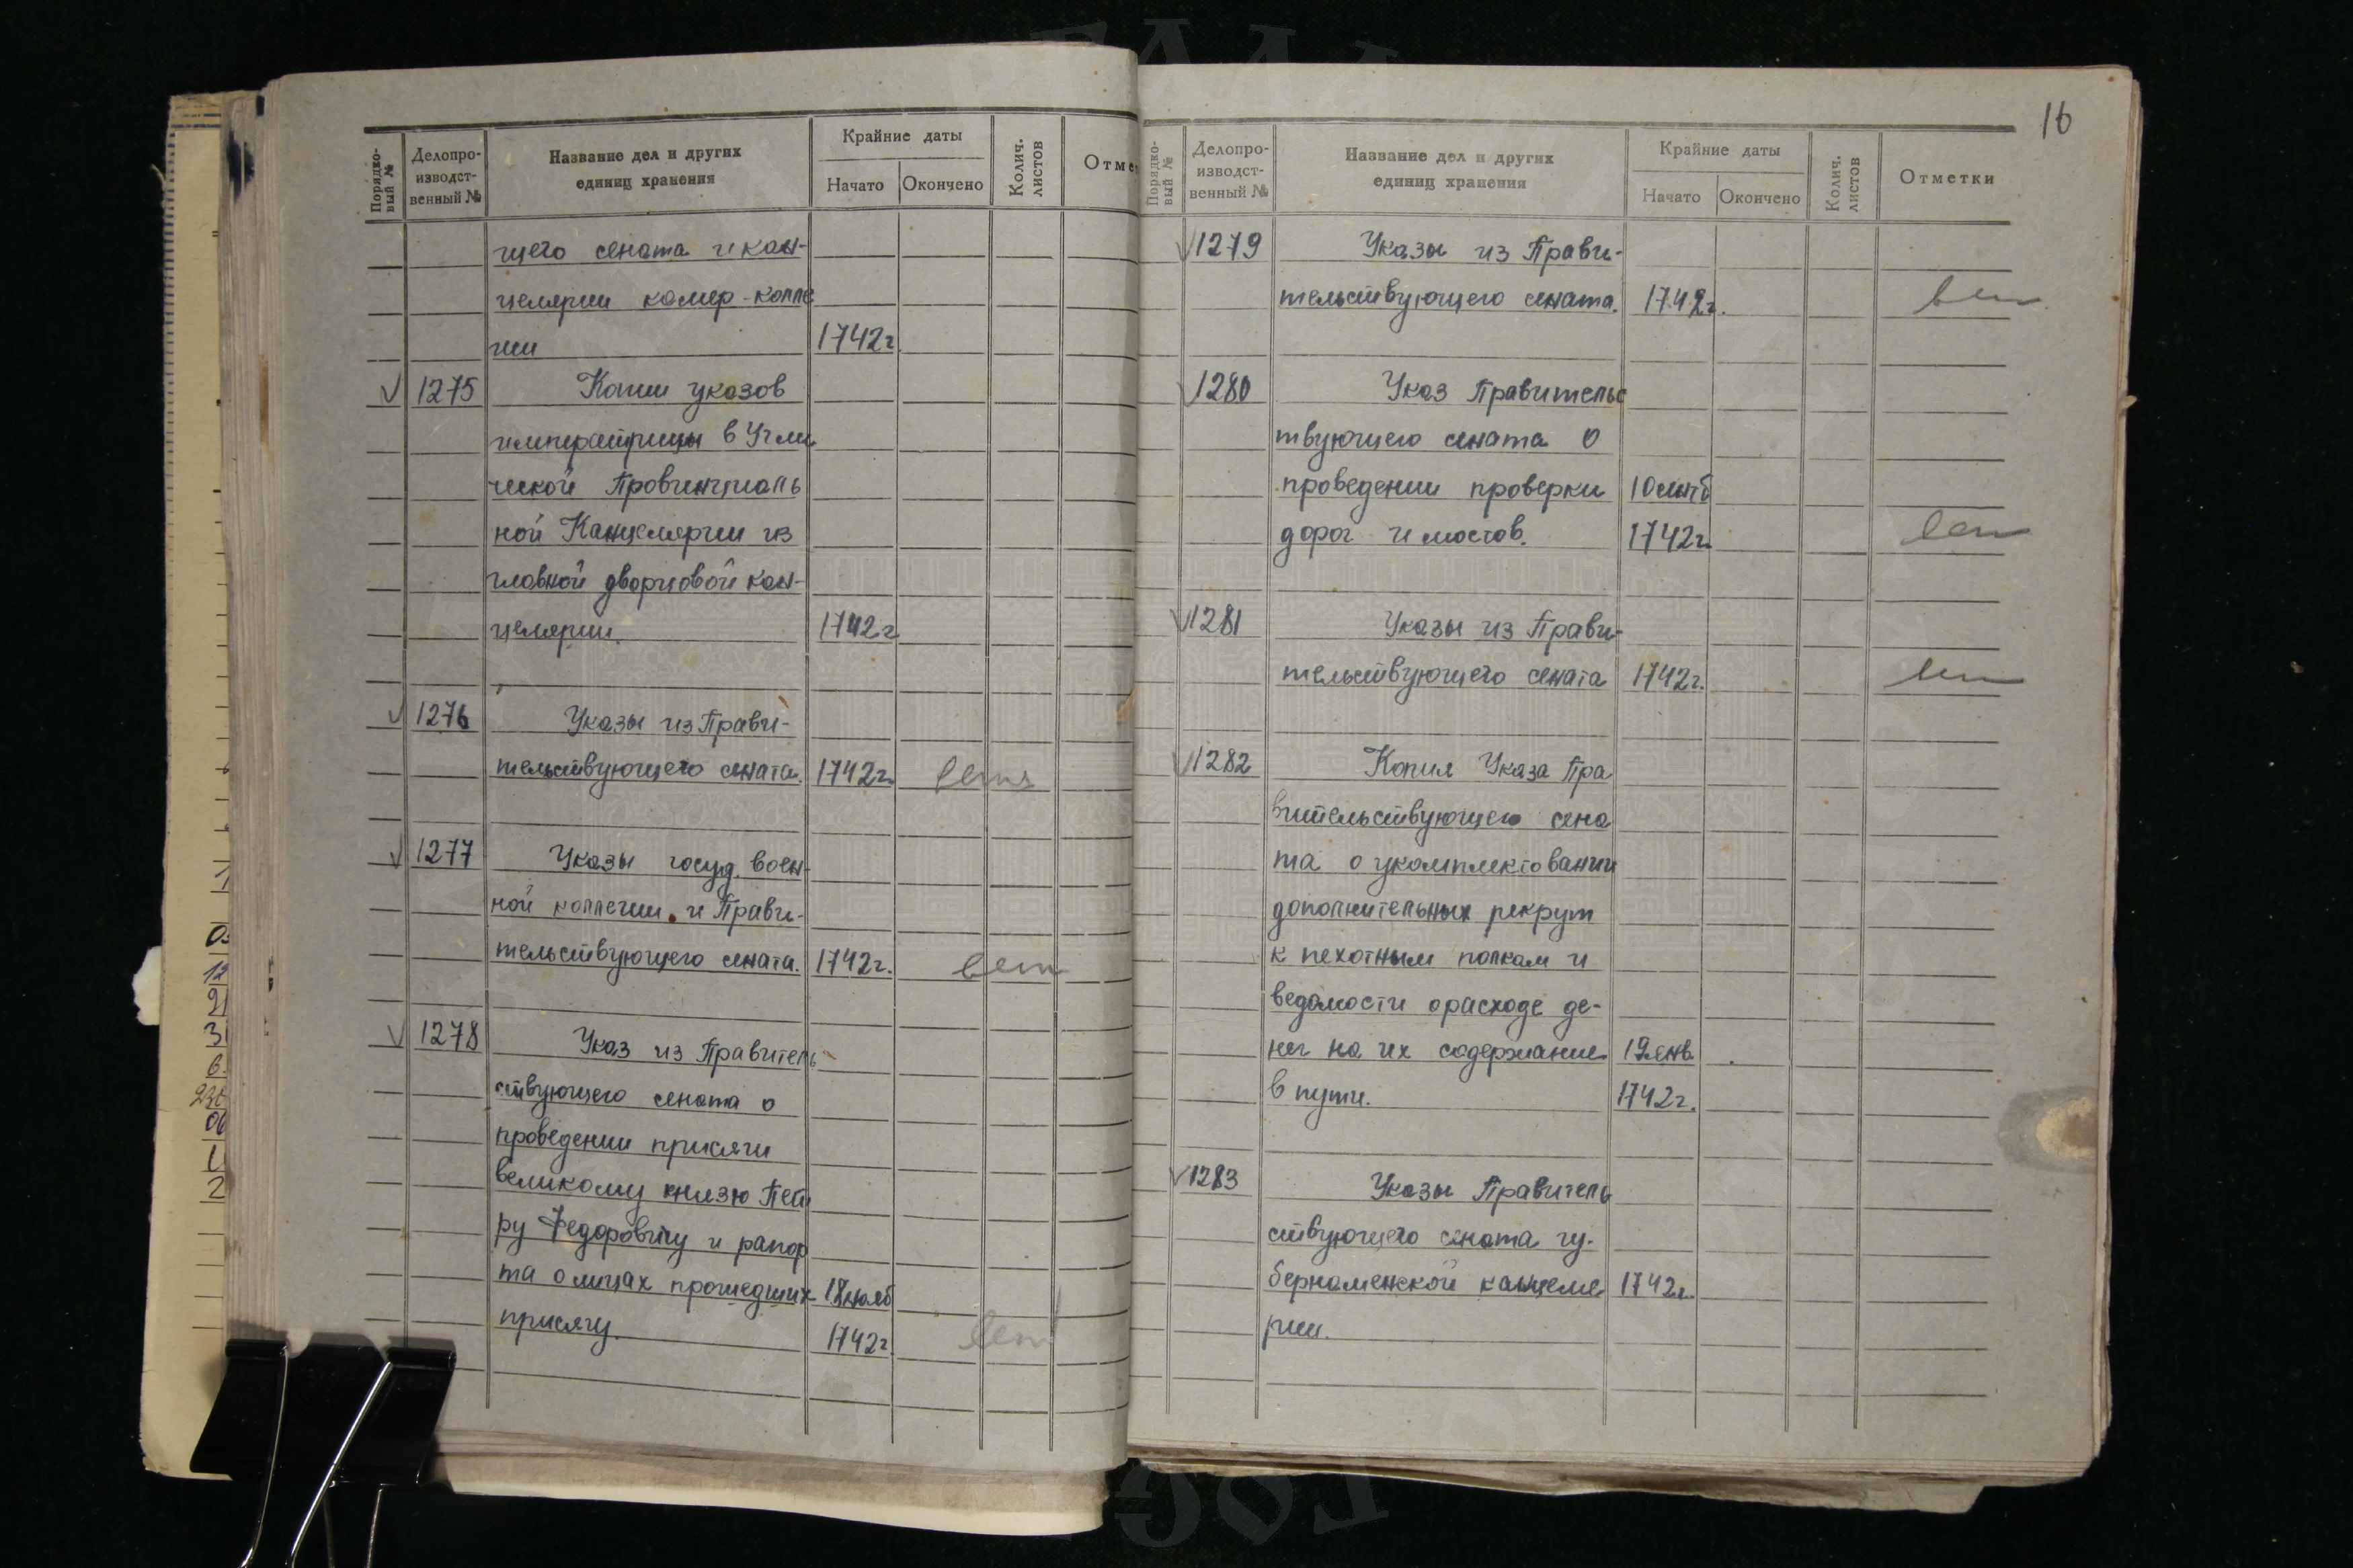 Порядко-
вый №
Делопро-
изводст-
венный №
Название дел и других
единиц хранения
Крайние даты
Начато Окончено
Колич.
листов
Отме
щего сената и кан-
целярии камер-колле
гии 1742г
√ 1275 Копии указов
императрицы в Угли
ческой Провинциаль
ной Канцелярии из
главной дворцовой кан-
целярии. 1742г
√ 1276 Указы из Прави-
тельствующего сената. 1742г.
√ 1277 Указы госуд. воен-
ной коллегии и Прави-
тельствующего сената. 1742г.
√ 1278 Указ из Правитель
ствующего сената о
проведении присяги
великому князю Пет
ру Федоровичу и рапор
та о лицах прошедших 18 нояб
присягу. 1742г.
16
Порядко-
вый №
Делопро-
изводст-
венный №
Название дел и других
единиц хранения
Крайние даты
Начато Окончено
Колич.
листов
Отметки
√ 1279 Указы из Прави-
тельствующего сената. 1742г.
√ 1280 Указ Правительс
твующего сената о
проведении проверки 10 сентб
дорог и мостов. 1742г.
√ 1281 Указы из Прави-
тельствующего сената 1742г.
√ 1282 Копия Указа Пра
вительствующего сена
та о укомплектовании
дополнительных рекрут
к пехотным полкам и
ведомости о расходе де-
нег на их содержание 19 янв.
в пути. 1742г.
√ 1283 Указы Правитель
ствующего сената гу-
берналенской канцеле 1742г.
рии.